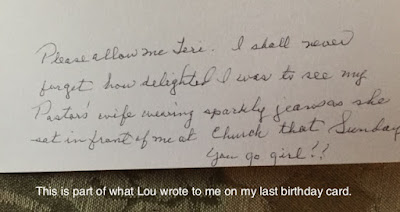 Please allow me Teri. I shall never
forget how delighted I was to see my
Pastor's wife wearing sparkly jeans as she
sat in front of me at Church that Sunday
You go girl!!
This is part of what Lou wrote to me on my last birthday card.